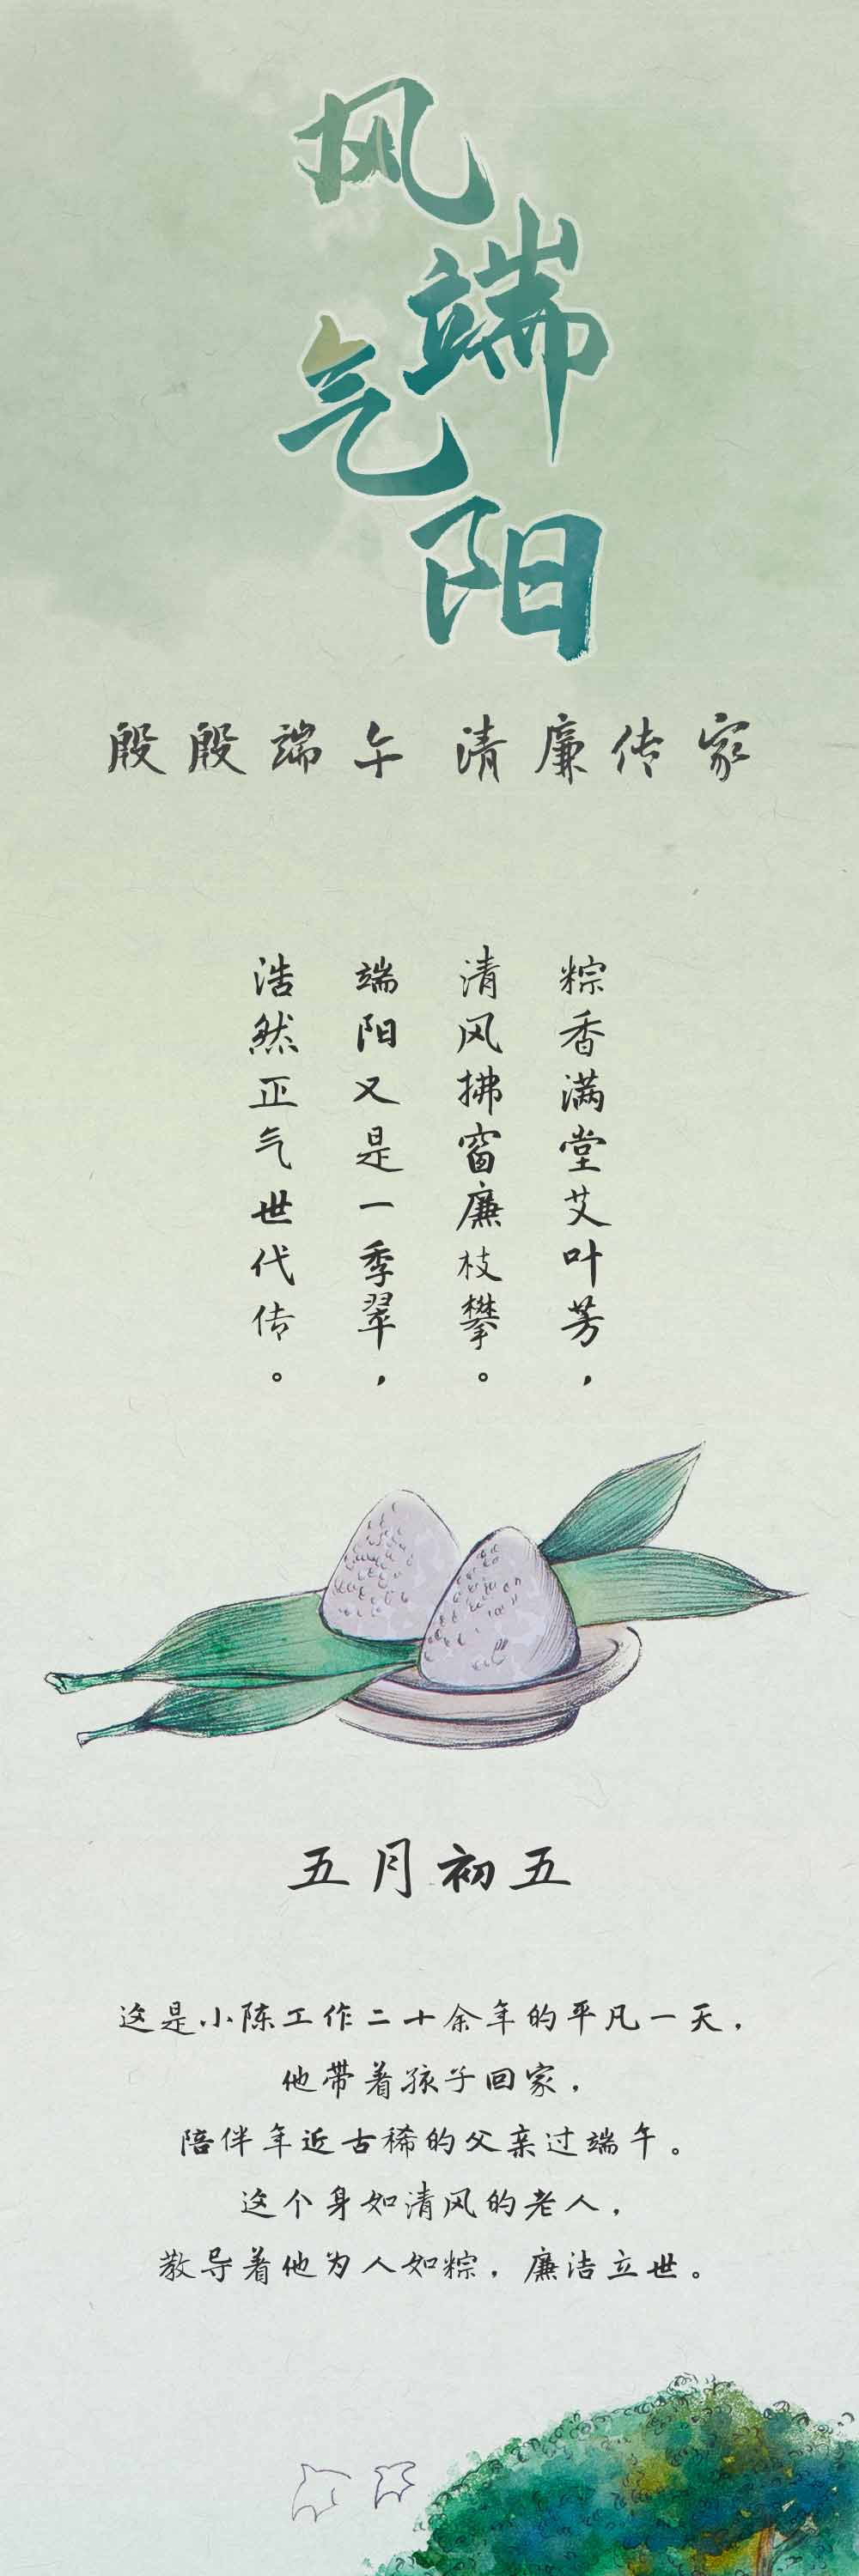 风端气阳
殷殷端午 清廉传家
粽香满堂艾叶芳，
清风拂窗廉枝攀。
端阳又是一季翠，
浩然正气世代传。
五月初五
这是小陈工作二十余年的平凡一天，
他带着孩子回家，
陪伴年近古稀的父亲过端午。
这个身如清风的老人，
教导着他为人如粽，廉洁立世。